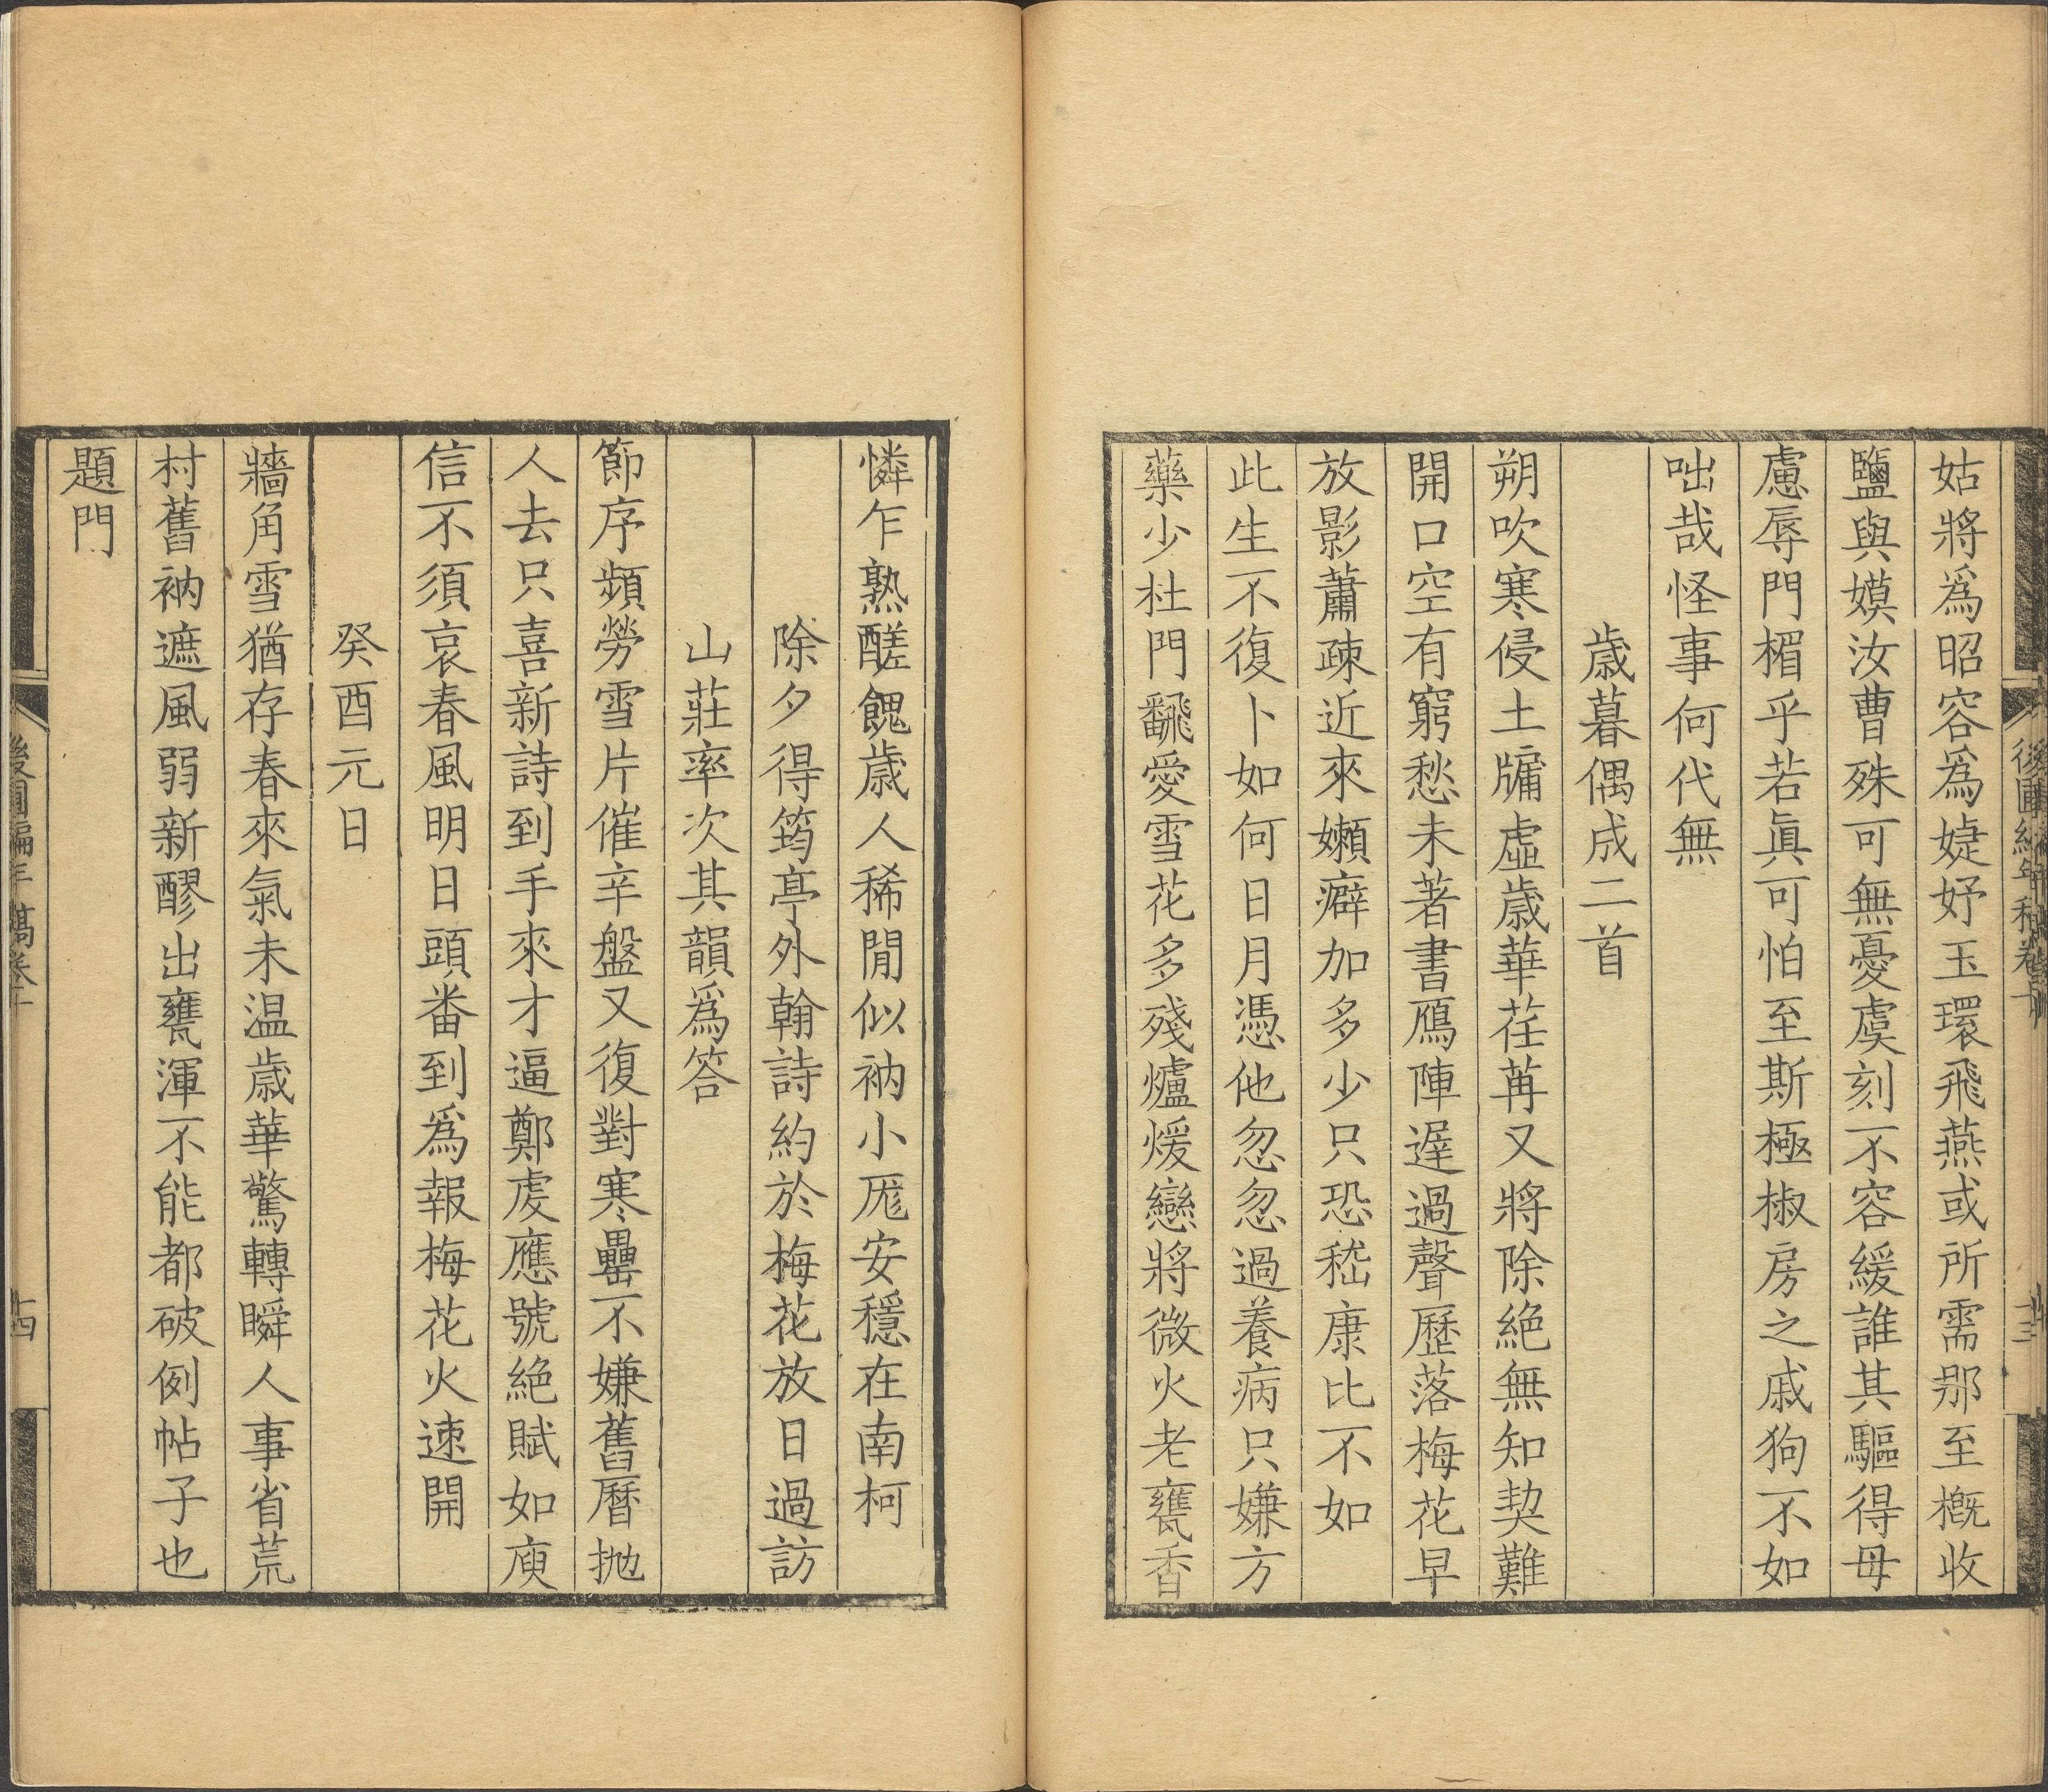 姑將爲昭容爲婕妤玉環飛燕或所需那至概收
鹽與嫫汝曹殊可無憂虞刻不容緩誰其驅得毋
慮辱門楣乎若眞可怕至斯極椒房之戚狗不如
咄哉怪事何代無
歲暮偶成二首
朔吹寒侵土牗虛歲華荏苒又將除絶無知契難
開口空有窮愁未著書鴈陣遲過聲歷落梅花早
放影蕭疎近來嬾癖加多少只恐嵇康比不如
此生不復卜如何日月憑他忽忽過養病只嫌方
藥少杜門飜愛雪花多殘爐煖戀將微火老甕香
憐乍熟醝餽歲人稀閒似衲小厖安穩在南柯
除夕得筠亭外翰詩約於梅花放日過訪
山莊率次其韻爲答
節序頻勞雪片催辛盤又復對寒罍不嫌舊曆抛
人去只喜新詩到手來才逼鄭虔應號絶賦如庾
信不須哀春風明日頭番到爲報梅花火速開
癸酉元日
牆角雪猶存春來氣未温歲華驚轉瞬人事省荒
村舊衲遮風弱新醪出甕渾不能都破例帖子也
題門
後圃編年稿卷十
十四